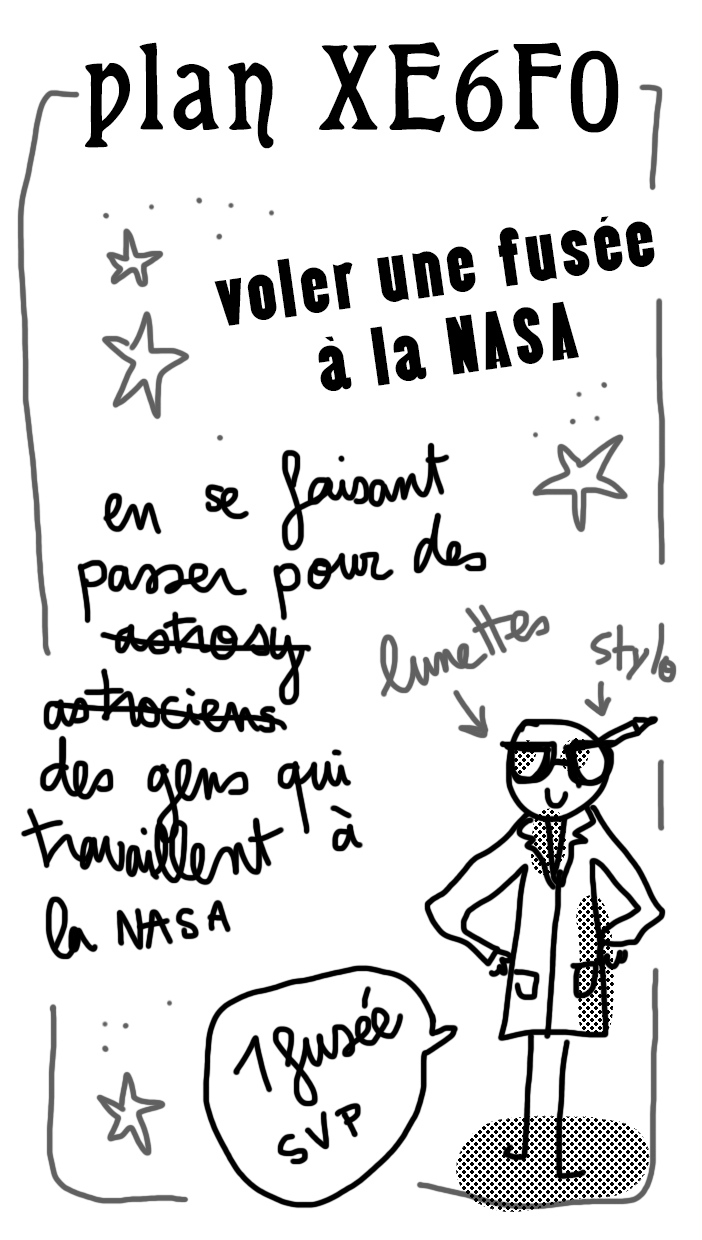 plan XE6F0
voler une fusée
à la NASA
en se faisant
passer pour des
astrosy
astrociens
des gens qui
travaillent à
la NASA
lunettes
stylo
1 fusée
SVP